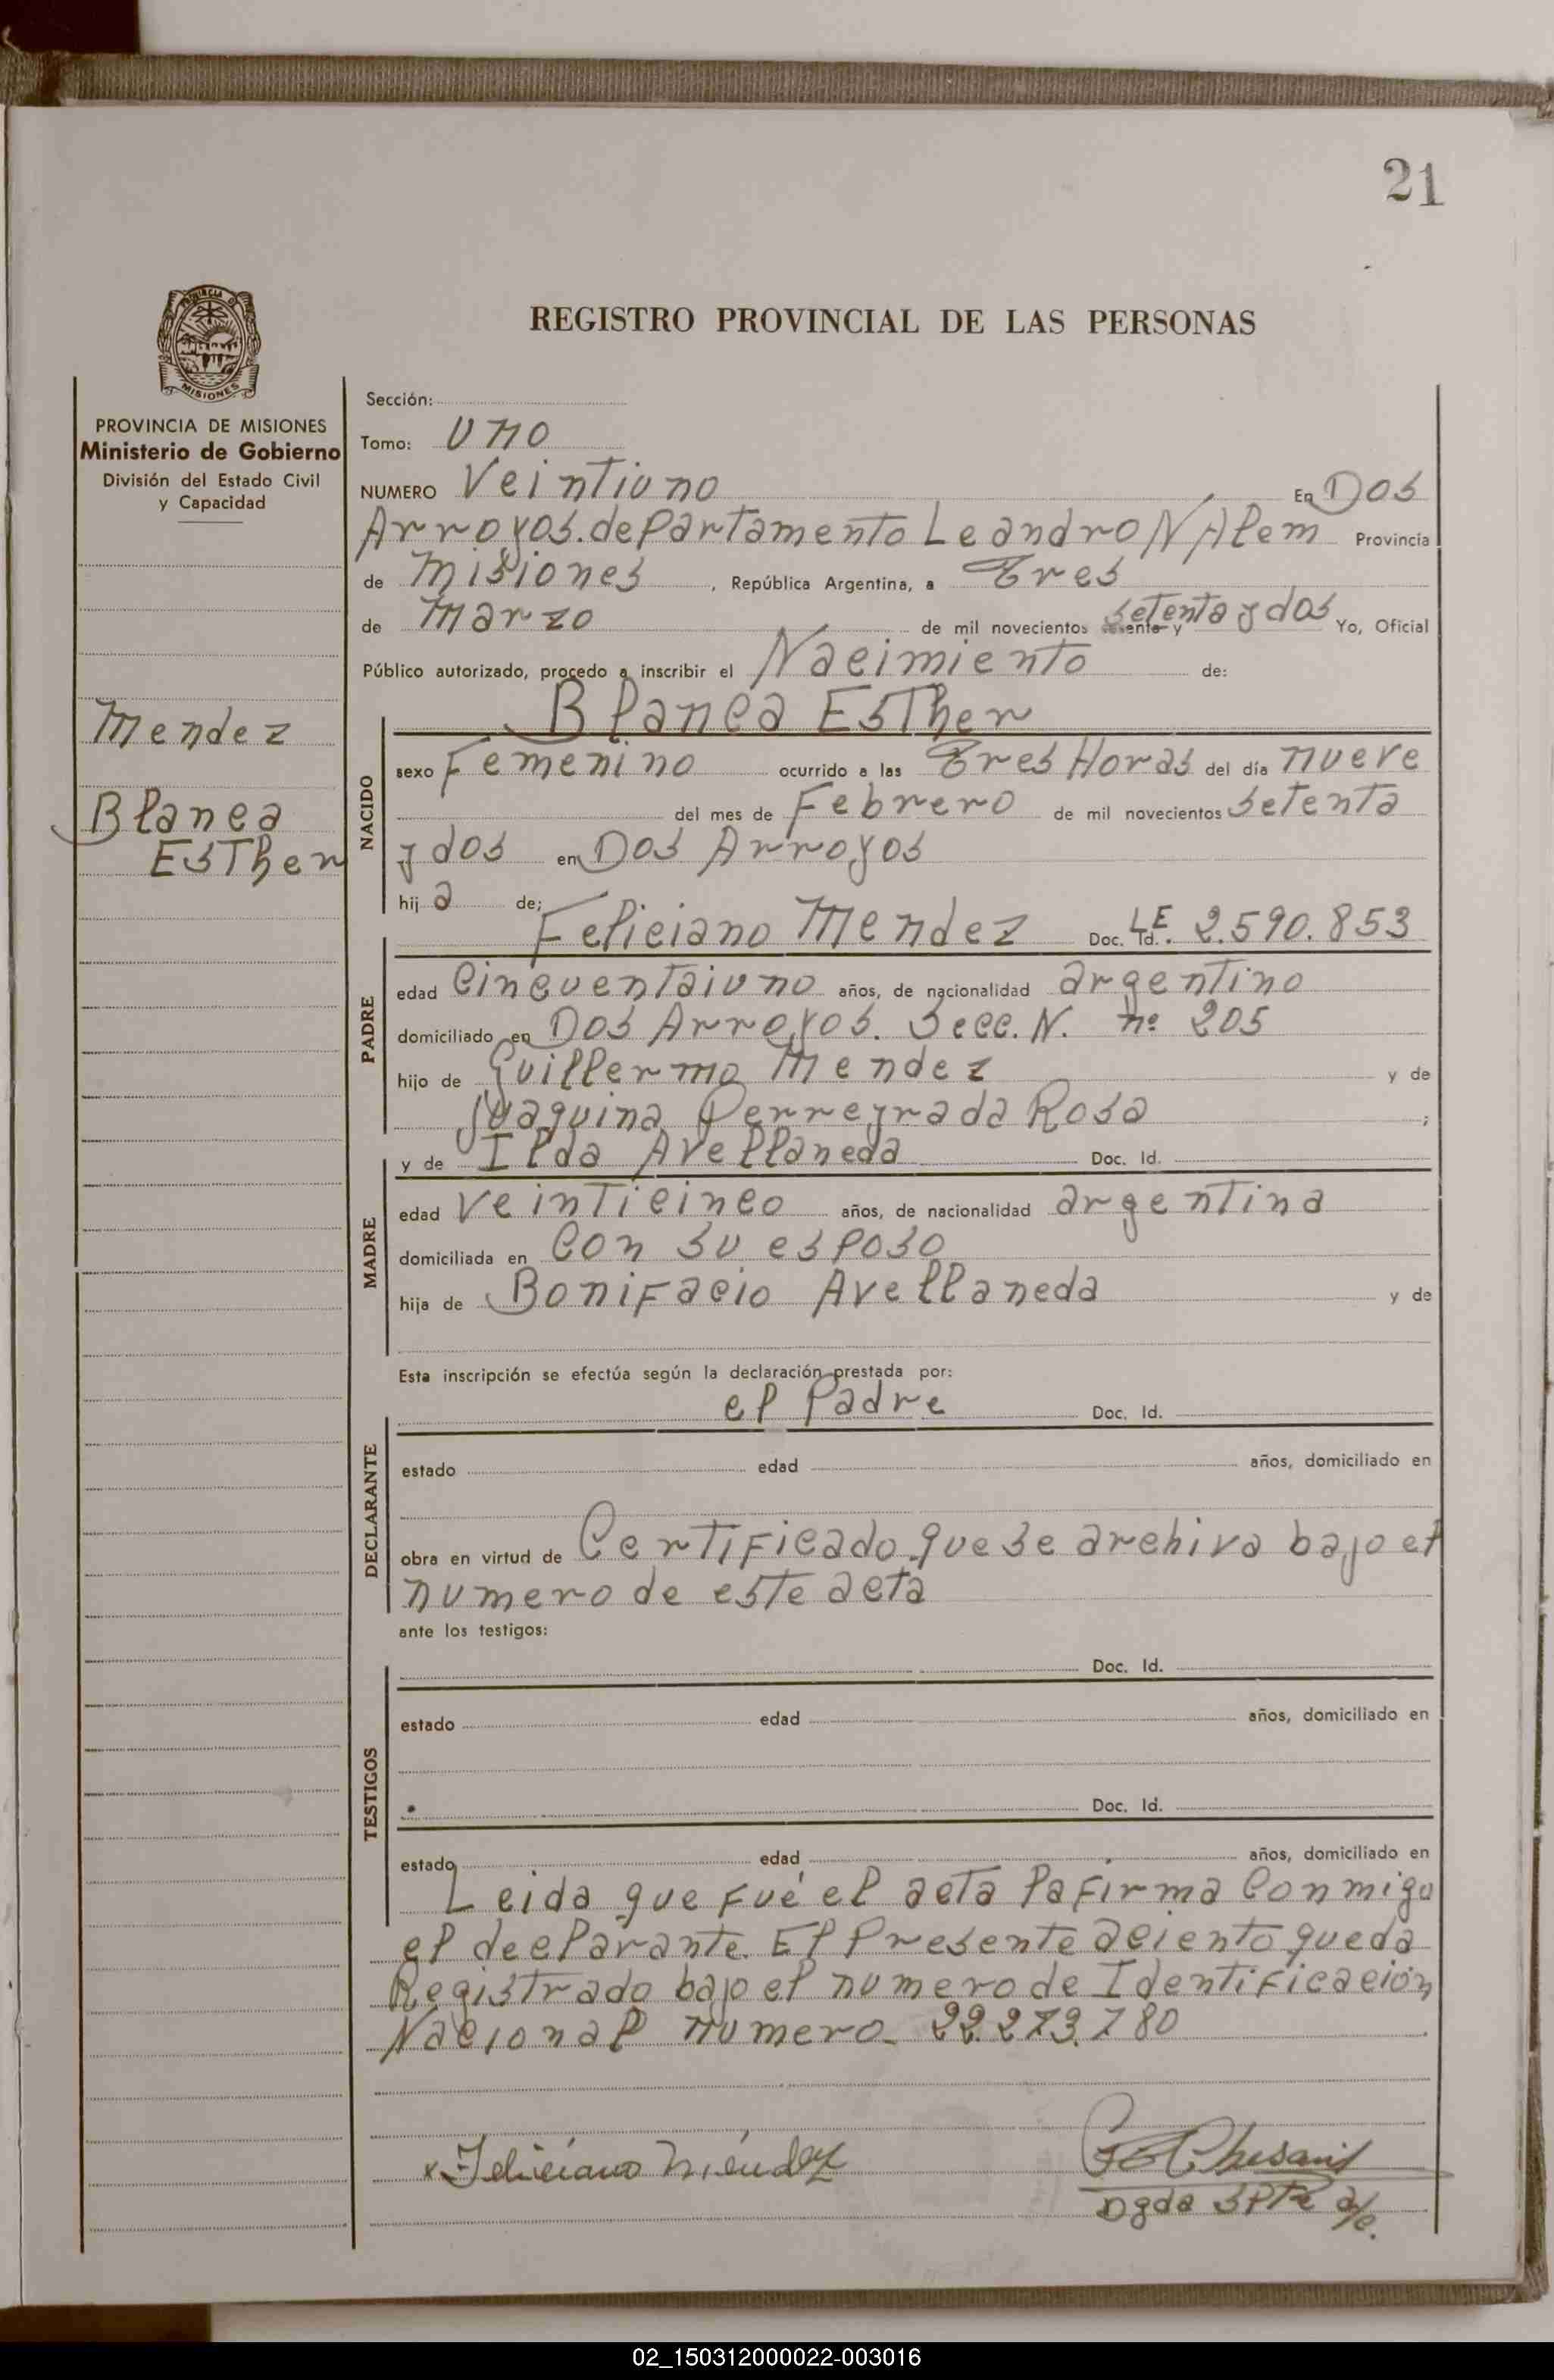 21
REGISTRO PROVINCIAL DE LAS PERSONAS
PROVINCIA DE
MISIONES
PROVINCIA DE MISIONES
Ministerio de Gobierno
División del Estado Civil
y Capacidad
Mendez
Blanca
Esther
Sección:
Tomo: Uno
NUMERO Veintiuno En Dos
Arroyos. departamento Leandro N Alem Provincia
de Misiones, República Argentina, a Tres
de Marzo de mil novecientos setenta y dos Yo, Oficial
Público autorizado, procedo a inscribir el Nacimiento de:
Blanca Esther
NACIDO
sexo Femenino ocurrido a las Tres Horas del día nueve
del mes de Febrero de mil novecientos setenta
y dos en Dos Arroyos
hij a de;
Feliciano Mendez Doc. Id. LE. 2.590.853
PADRE
edad Cincuentaiuno años, de nacionalidad argentino
domiciliado en Dos Arroyos. Secc. N. nº 205
hijo de Guillermo Mendez y de
Rosa ;
y de Ilda Avellaneda Doc. Id.
MADRE
edad veinticinco años, de nacionalidad argentina
domiciliada en Con su esposo
hija de Bonifacio Avellaneda y de
Esta inscripción se efectúa según la declaración prestada por:
el Padre Doc. Id.
DECLARANTE
estado edad años, domiciliado en
obra en virtud de Certificado que se archiva bajo el
numero de este acta
ante los testigos:
Doc. Id.
TESTIGOS
estado edad años, domiciliado en
Doc. Id.
estado edad años, domiciliado en
Leida que fué el acta la firma Conmigo
el declarante. El Presente aciento queda
Registrado bajo el numero de Identificación
Nacional numero 22.273.780
x Feliciano Méndez
Dgda SPTe a/c.
02_150312000022-003016